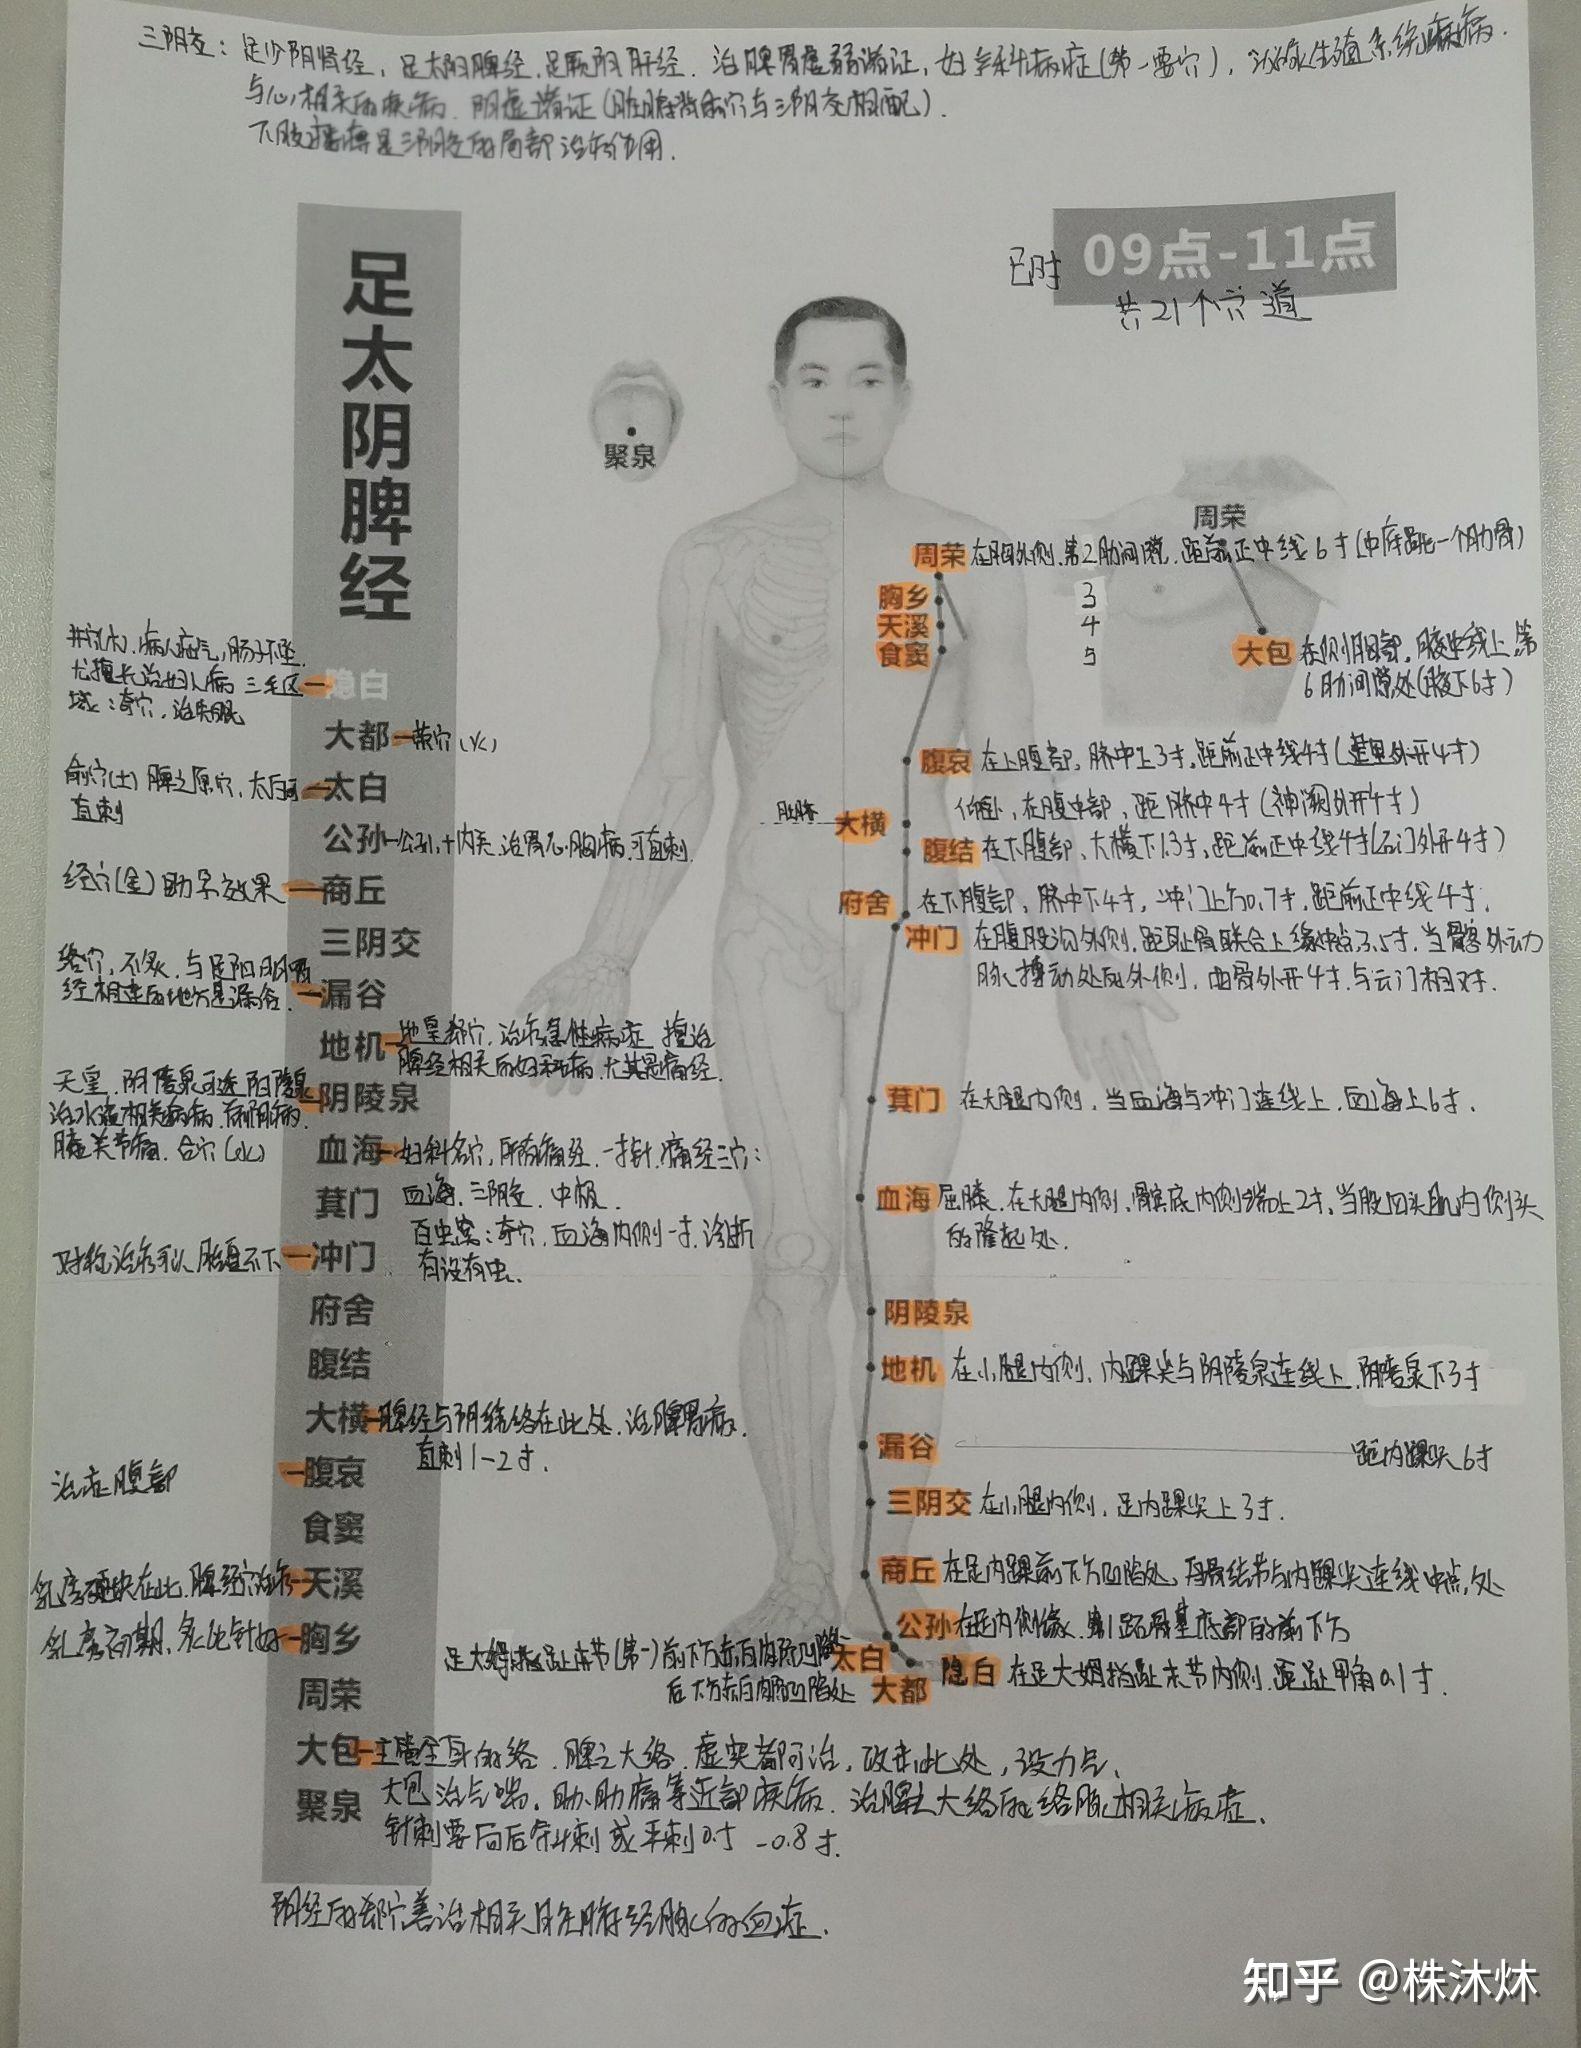 三阴交：足少阴肾经，足太阴脾经，足厥阴肝经．治脾胃虚弱诸证，妇产科病症(第一要穴)，泌尿生殖系统疾病．
与心相关的疾病．阴虚诸证(脏腑背俞穴与三阴交相配)．
下肢痿痹是三阴交的局部治疗作用．
巳时 09点-11点
共21个穴道
足太阴脾经
聚泉
周荣
周荣 在胸外侧，第2肋间隙，距前正中线6寸(中府跳一个肋骨)
胸乡 3
天溪 4
食窦 5
大包 在侧胸部，腋中线上，第
6肋间隙处(腋下6寸)
腹哀 在上腹部，脐中上3寸，距前正中线4寸(建里外开4寸)
肚脐 大横 仰卧，在腹中部，距脐中4寸(神阙外开4寸)
腹结 在下腹部，大横下1.3寸，距前正中线4寸(石门外开4寸)
府舍 在下腹部，脐中下4寸，冲门上方0.7寸，距前正中线4寸．
冲门 在腹股沟外侧，距耻骨联合上缘中点3.5寸，当髂外动
脉搏动处的外侧，曲骨外开4寸．与云门相对．
箕门 在大腿内侧，当血海与冲门连线上，血海上6寸．
血海 屈膝，在大腿内侧，髌底内侧端上2寸，当股四头肌内侧头
的隆起处．
阴陵泉
地机 在小腿内侧，内踝尖与阴陵泉连线上，阴陵泉下3寸
漏谷 距内踝尖6寸
三阴交 在小腿内侧，足内踝尖上3寸．
商丘 在足内踝前下方凹陷处，舟骨结节与内踝尖连线中点处
公孙 在足内侧缘，第1跖骨基底部的前下方
足大拇指趾关节(第一)前下方赤白肉际凹陷
太白
后下方赤白肉际凹陷处 大都
隐白 在足大姆指趾末节内侧．距趾甲角0.1寸．
井穴(木)，病人疝气，肠子下坠．
尤擅长治妇人病 三毛区
域：奇穴，治失眠
隐白
大都 荥穴(火)
俞穴(土)脾之原穴，太白可
直刺
太白
公孙 公孙+内关，治胃心胸病，可直刺．
经穴(金)助孕效果 商丘
三阴交
络穴，不灸，与足阳明胃
经相连的地方是漏谷． 漏谷
地机 地皇郄穴，治疗急性病症 擅治
脾经相关的妇科病，尤其是痛经．
天皇．阴陵泉可透阳陵泉
治水液相关疾病．前阴病．
膝关节痛．合穴(水)
阴陵泉
血海 妇科名穴，所有痛经．一针．痛经三穴：
血海．三阴交．中极．
百虫窝：奇穴，血海内侧一寸，诊断
有没有虫．
箕门
对称治疗可以胎直不下 冲门
府舍
腹结
大横 脾经与阴维络在此处．治脾胃病．
直刺1-2寸．
治症腹部 腹哀
食窦
乳房硬块在此，脾经穴治疗 天溪
乳房初期，灸比针好 胸乡
周荣
大包 主管全身的络．脾之大络．虚实都可治，攻击此处，没力气．
大包治气喘，胁、肋痛等近部疾病．治脾之大络的络脉相关病症．
针刺要向后斜刺或平刺0.5-0.8寸．
聚泉
阴经的郄穴善治相关脏腑经脉的血症．
知乎 @株沐烌